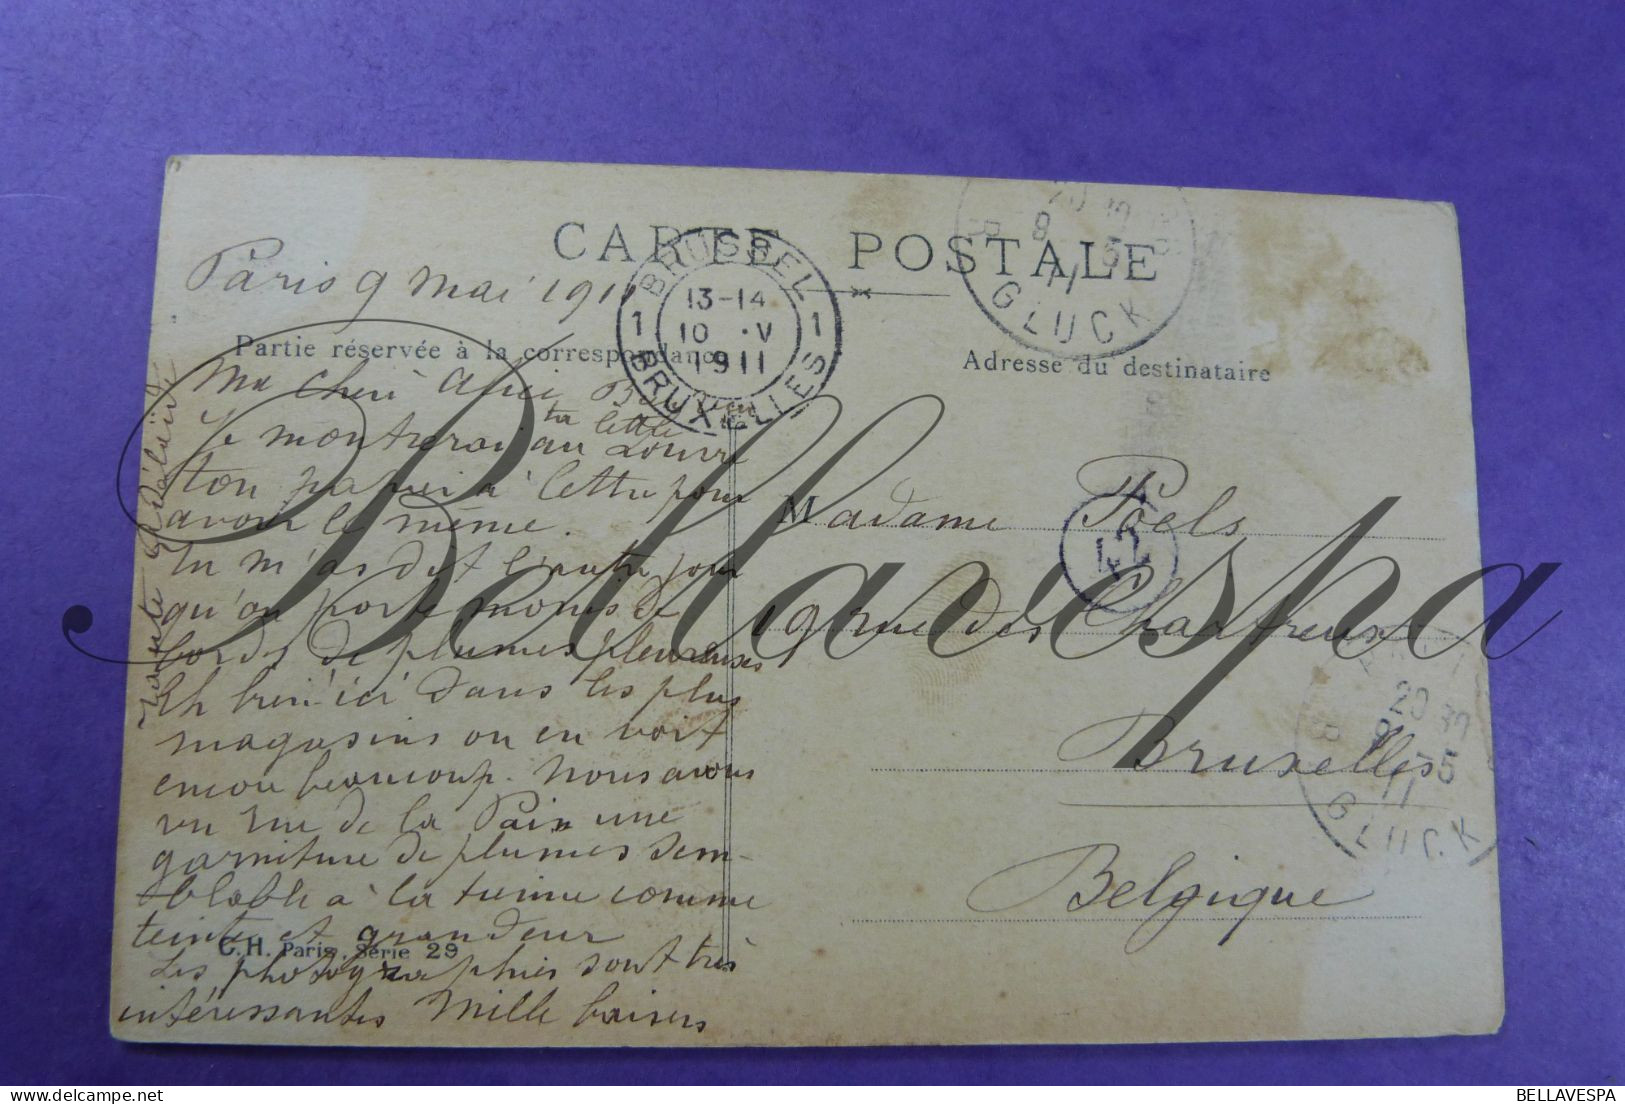 CARTE POSTALE
Paris 9 mai 1911
BRUSSEL
13-14
1 10 ·V 1
1911
BRUXELLES
20
9 5
11
GLUCK
Partie réservée à la correspondance
Adresse du destinataire
Ma cher Alice
ta lettre
Je montrerai au Louvre
ton papier à lettre pour
avoir le même.
Tu m'as dit l'autre jour
qu'on porte moins de
bordes de plumes pleureuses
Eh bien ici dans les plus
magasins on en voit
encore beaucoup. Nous avons
vu rue de la Paix une
garniture de plumes sem-
blable à la tienne comme
teinte et grandeur
Les photographies sont très
intéressantes Mille baisers
C.H. Paris. Série 29
Madame Poels
42
19 rue des Chartreux
Bruxelles
Belgique
20 30
9 5
11
GLUCK
Bellavespa
BELLAVESPA